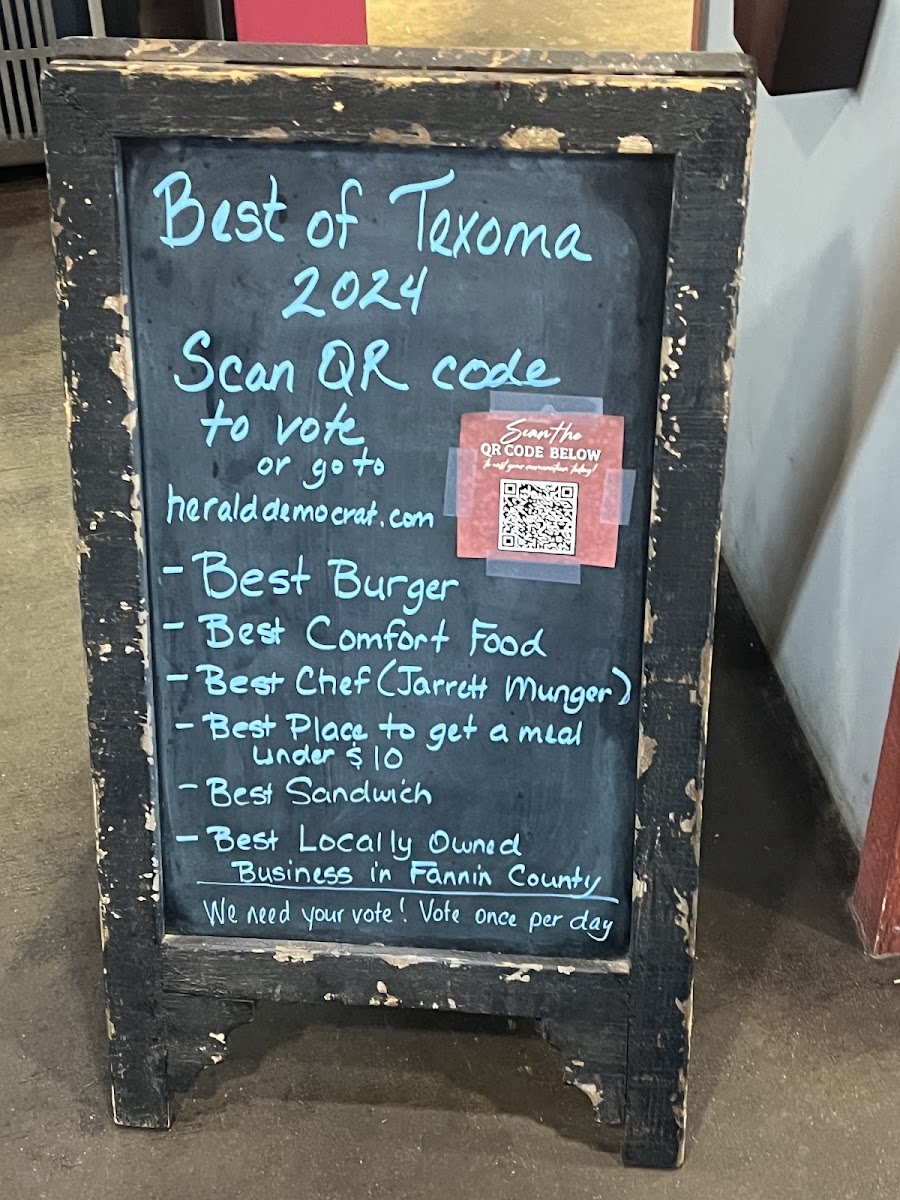 Best of Texoma
2024
Scan QR code
to vote
or go to
heralddemocrat.com
Scan the
QR CODE BELOW
to cast your nomination today!
- Best Burger
- Best Comfort Food
- Best Chef (Jarrett Munger)
- Best Place to get a meal
under $10
- Best Sandwich
- Best Locally Owned
Business in Fannin County
We need your vote! Vote once per day